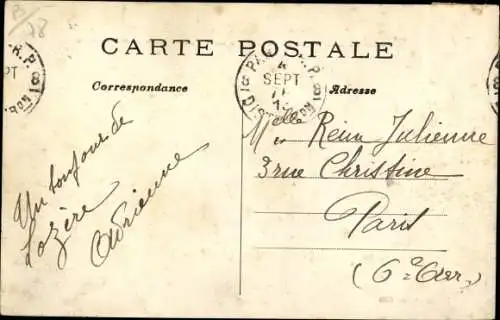 CARTE POSTALE
Correspondance
Adresse
4
SEPT
Un bonjour de
Lozère
Adrienne
Melle Reine Julienne
3 rue Christine
Paris
(6e Arr)